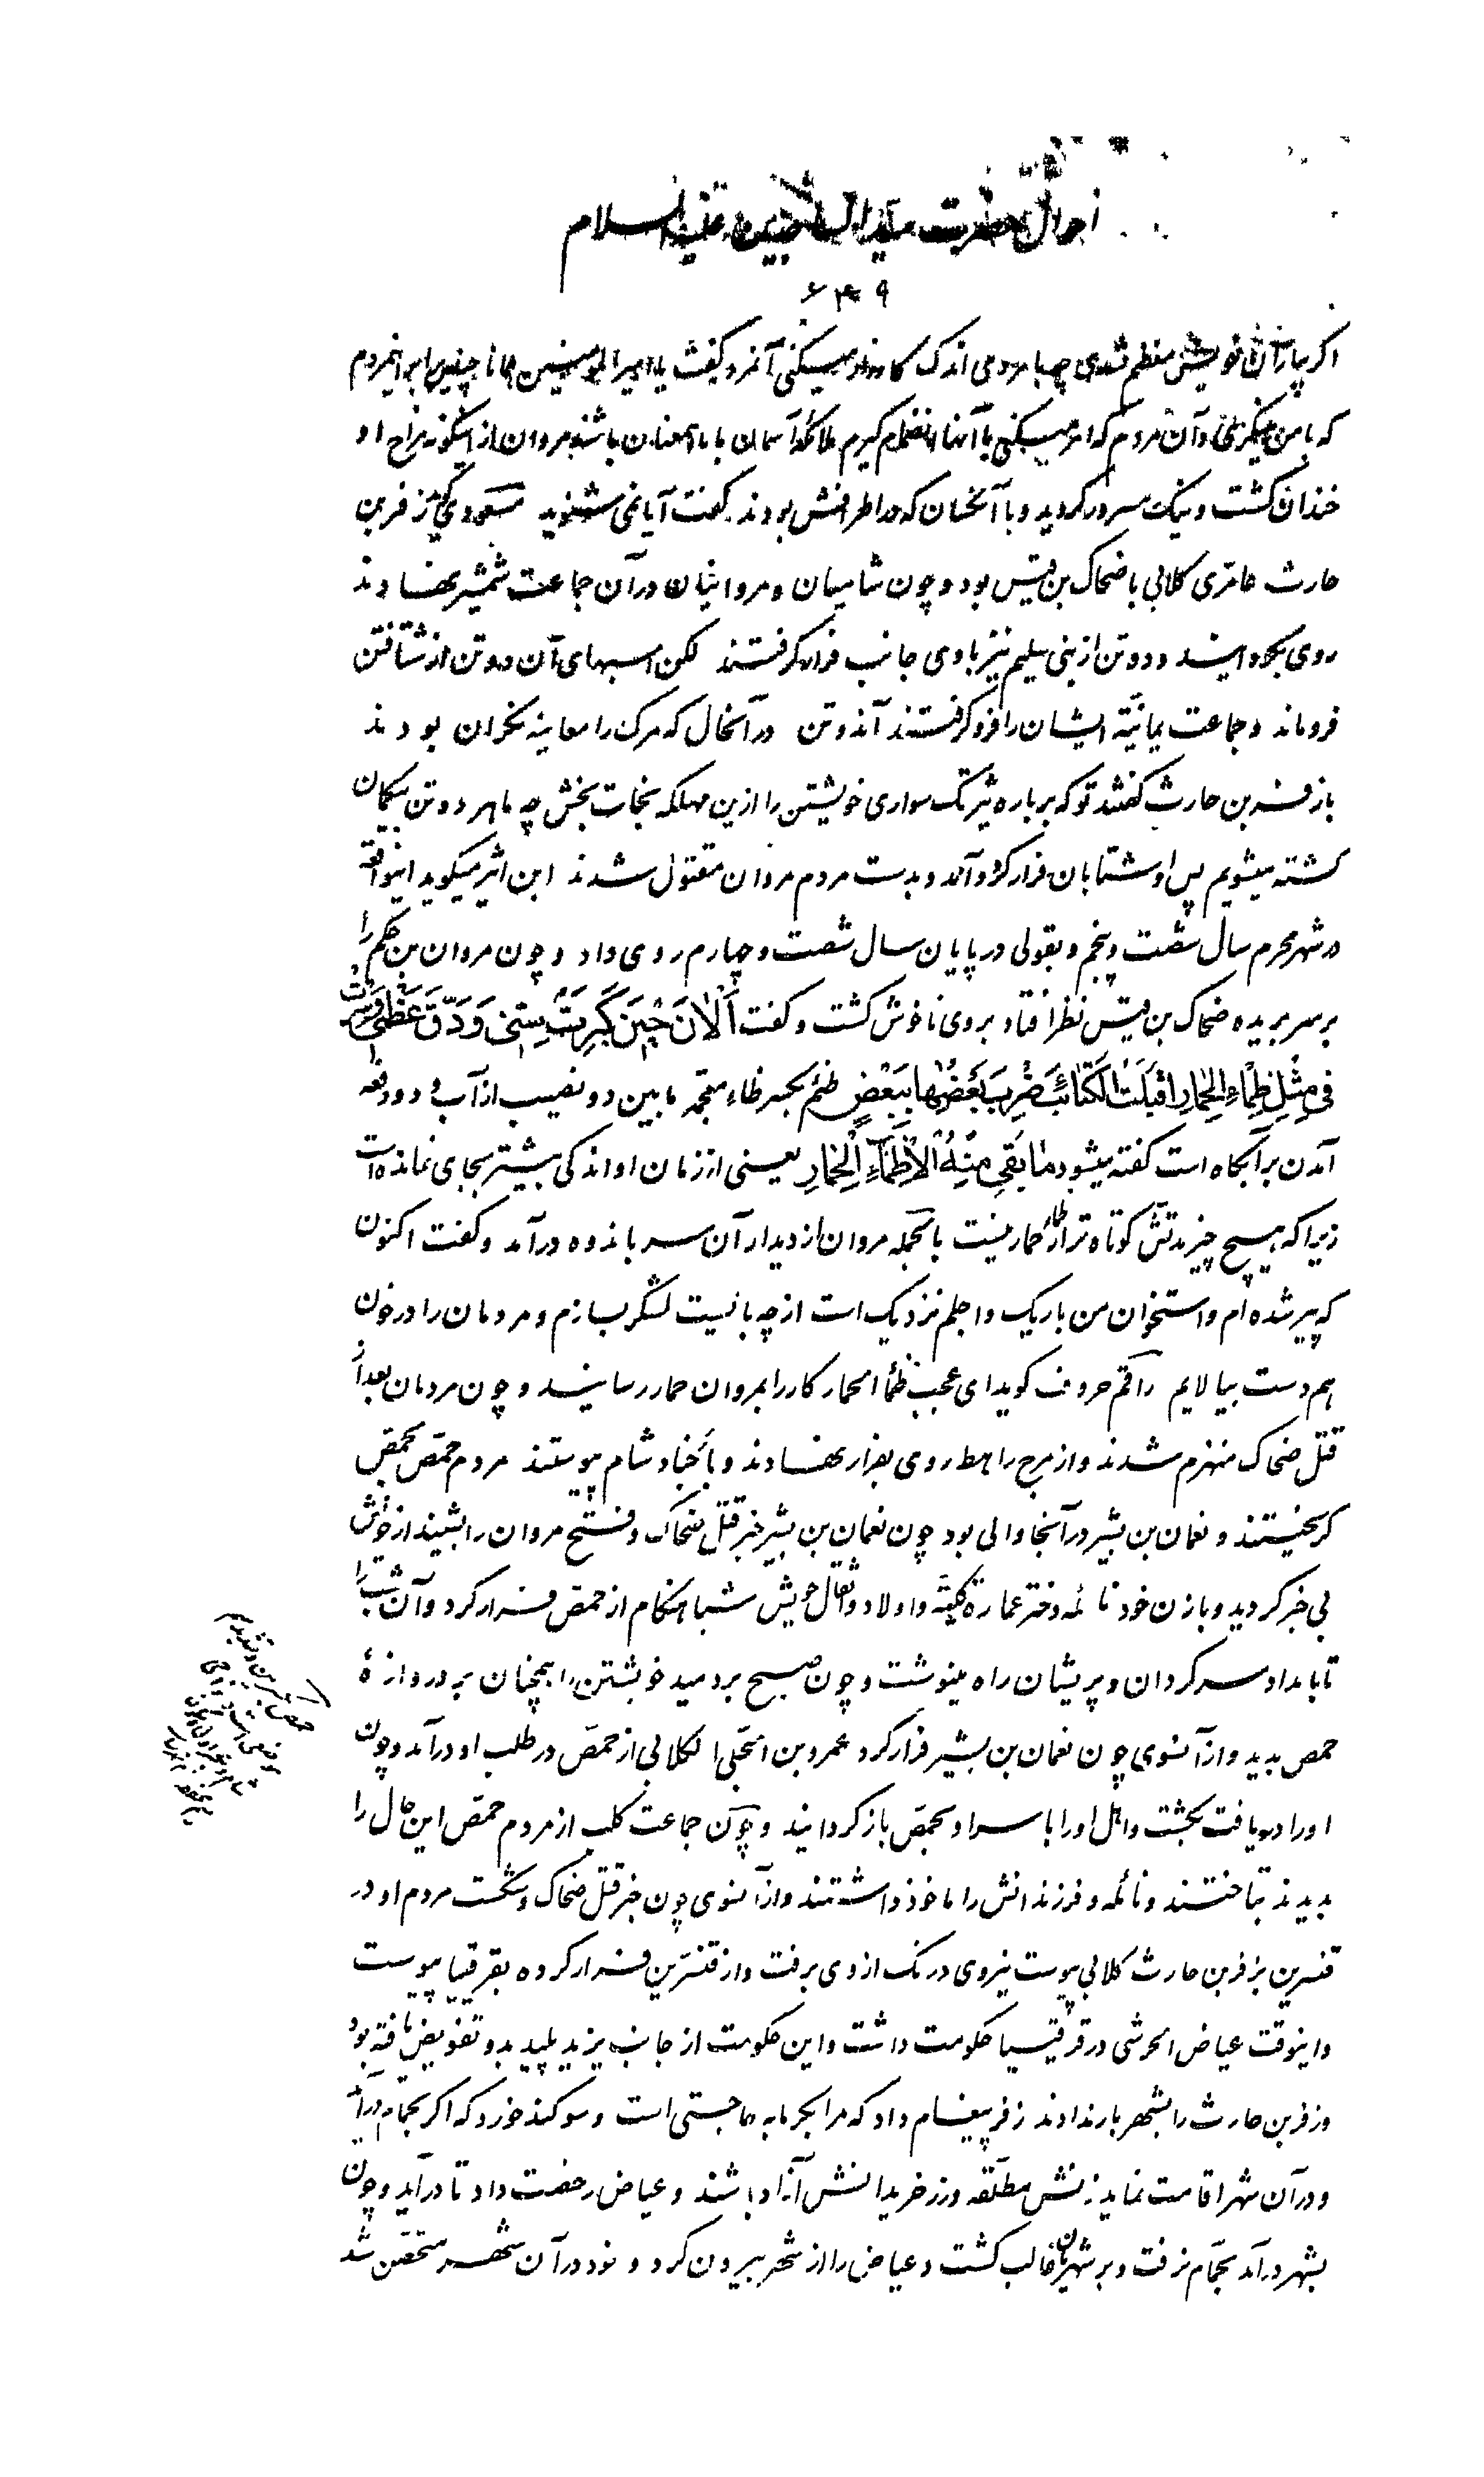 احوال حضرت سید الساجدین علیه السلام
۶۳۹
اگر بیاران خویش منظم شدی چه با مردمی اندک کارزار میکنی آنمرد گفت یا امیر المؤمنین همانا چنین اینمردم
که با من میکنی و آن مردم که امر میکنی با آنها انضمام گیرم ملائکه آسمان با باشند مروان از اینگونه مزاح او
خندان گشت و نیک مسرور گردید و با آنکسان که در اطرافش بودند گفت آیا نمی شنوید مسعودی گوید زفر بن
حارث عامری کلابی با ضحاک بن قیس بود و چون شامیان و مروانیان در آن جماعت شمشیر نهادند
روی بگردانید و دو تن از بنی سلیم نیز با وی جانب فرار گرفتند لکن اسبهای آن دو تن از شتافتن
فروماند و جماعت یمانیّه ایشان را فرو گرفتند آندو تن در آنحال که مرگ را معاینه نگران بودند
با زفر بن حارث گفتند تو که بر باره تیزتک سواری خویشتن را ازین مهلکه نجات بخش چه ما هر دو تن بیگمان
کشته میشویم پس او شتابان فرار کرد و آندو بدست مردم مروان مقتول شدند ابن اثیر میگوید اینواقعه
در شهر محرم سال شصت و پنجم و بقولی در پایان سال شصت و چهارم روی داد و چون مروان بن حکم را
بر سر بریده ضحاک بن قیس نظر افتاد بروی ناخوش گشت و گفت اَلْانَ حِینَ کَبِرَتْ سِنّی وَ دَقَّ عَظْمی وَ صِرْتُ
فی مِثْلِ ظِمْاءِ الْحِمارِ اَقْبَلْتُ الْکَتائِبَ ضَرَبَ بَعْضُها بِبَعْضٍ ظئم بکسر ظاء معجمه مابین دو نصیب از آب و دو دفعه
آمدن بر آبگاه است گفته میشود مابَقِیَ مِنْهُ اِلّا ظِمْاءُ الْحِمارِ یعنی از زمان او اندکی بیشتر بجای نمانده است
زیرا که هیچ چیز مدتش کوتاه تر از ظمأ حمار نیست بالجمله مروان از دیدار آن سر باندوه درآمد و گفت اکنون
که پیر شده ام و استخوان من باریک و اجلم نزدیک است از چه بایست لشکر بسازم و مردمان را در خون
هم دست بیالایم راقم حروف گوید ای عجب ظمأ الحمار کار را بمروان حمار رسانید و چون مردمان بعد از
قتل ضحاک منهزم شدند و از مرج راهط روی بفرار نهادند و باجناد شام پیوستند مردم حمص بحمص
گریختند و نعمان بن بشیر در آنجا والی بود چون نعمان بن بشیر خبر قتل ضحاک و فتح مروان را بشنید از خویش
بی خبر گردید و با زن خود نائله دختر عماره کلبیّه و اولاد و اثقال خویش شباهنگام از حمص فرار کرد و آن شب را
تا بامداد سرگردان و پریشان راه مینوشت و چون صبح بردمید خویشتن را همچنان بر دروازهٔ
حمص بدید و از آنسوی چون نعمان بن بشیر فرار کرد عمرو بن الجلی الکلابی از حمص در طلب او درآمد و چون
او را دریافت بکشت و اهل او را با سر او بحمص باز گردانید و چون جماعت کلب از مردم حمص این حال را
بدیدند بتاختند و نائله و فرزندانش را ماخوذ داشتند و از آنسوی چون خبر قتل ضحاک و شکست مردم او در
قنسرین بزفر بن حارث کلابی پیوست نیروی درنگ از وی برفت و از قنسرین فرار کرده بقرقیسیا پیوست
و اینوقت عیاض الحرشی در قرقیسیا حکومت داشت و این حکومت از جانب یزید پلید بدو تفویض یافته بود
و زفر بن حارث را بشهر بار ندادند زفر پیغام داد که مرا بگرمابه حاجتی است و سوگند خورد که اگر بحمام درآید
و در آن شهر اقامت نماید زنش مطلّقه و زرخریدانش آزاد باشند و عیاض رخصت داد تا درآید و چون
بشهر درآمد بحمام نرفت و بر شهریان غالب گشت و عیاض را از شهر بیرون کرد و خود در آن شهر متحصن شد